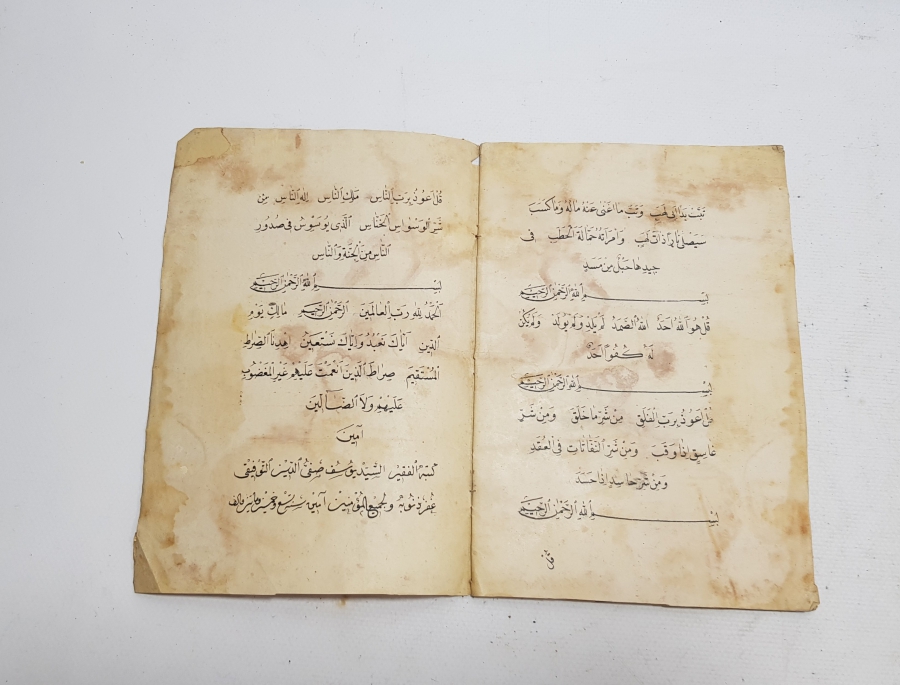 تَبَّتْ يَدَا أَبِي لَهَبٍ وَتَبَّ مَا أَغْنَىٰ عَنْهُ مَالُهُ وَمَا كَسَبَ
سَيَصْلَىٰ نَارًا ذَاتَ لَهَبٍ وَامْرَأَتُهُ حَمَّالَةَ الْحَطَبِ فِي
جِيدِهَا حَبْلٌ مِنْ مَسَدٍ
بِسْمِ اللهِ الرَّحْمٰنِ الرَّحِيمِ
قُلْ هُوَ اللهُ أَحَدٌ اللهُ الصَّمَدُ لَمْ يَلِدْ وَلَمْ يُولَدْ وَلَمْ يَكُنْ
لَهُ كُفُوًا أَحَدٌ
بِسْمِ اللهِ الرَّحْمٰنِ الرَّحِيمِ
قُلْ أَعُوذُ بِرَبِّ الْفَلَقِ مِنْ شَرِّ مَا خَلَقَ وَمِنْ شَرِّ
غَاسِقٍ إِذَا وَقَبَ وَمِنْ شَرِّ النَّفَّاثَاتِ فِي الْعُقَدِ
وَمِنْ شَرِّ حَاسِدٍ إِذَا حَسَدَ
بِسْمِ اللهِ الرَّحْمٰنِ الرَّحِيمِ
قل
قُلْ أَعُوذُ بِرَبِّ النَّاسِ مَلِكِ النَّاسِ إِلٰهِ النَّاسِ مِنْ
شَرِّ الْوَسْوَاسِ الْخَنَّاسِ الَّذِي يُوَسْوِسُ فِي صُدُورِ
النَّاسِ مِنَ الْجِنَّةِ وَالنَّاسِ
بِسْمِ اللهِ الرَّحْمٰنِ الرَّحِيمِ
اَلْحَمْدُ لِلّٰهِ رَبِّ الْعَالَمِينَ الرَّحْمٰنِ الرَّحِيمِ مَالِكِ يَوْمِ
الدِّينِ إِيَّاكَ نَعْبُدُ وَإِيَّاكَ نَسْتَعِينُ اِهْدِنَا الصِّرَاطَ
الْمُسْتَقِيمَ صِرَاطَ الَّذِينَ أَنْعَمْتَ عَلَيْهِمْ غَيْرِ الْمَغْضُوبِ
عَلَيْهِمْ وَلَا الضَّالِّينَ
آمِينَ
كتبه الفقير السيد يوسف صفي الدين
غفر ذنوبه ولجميع المؤمنين آمين